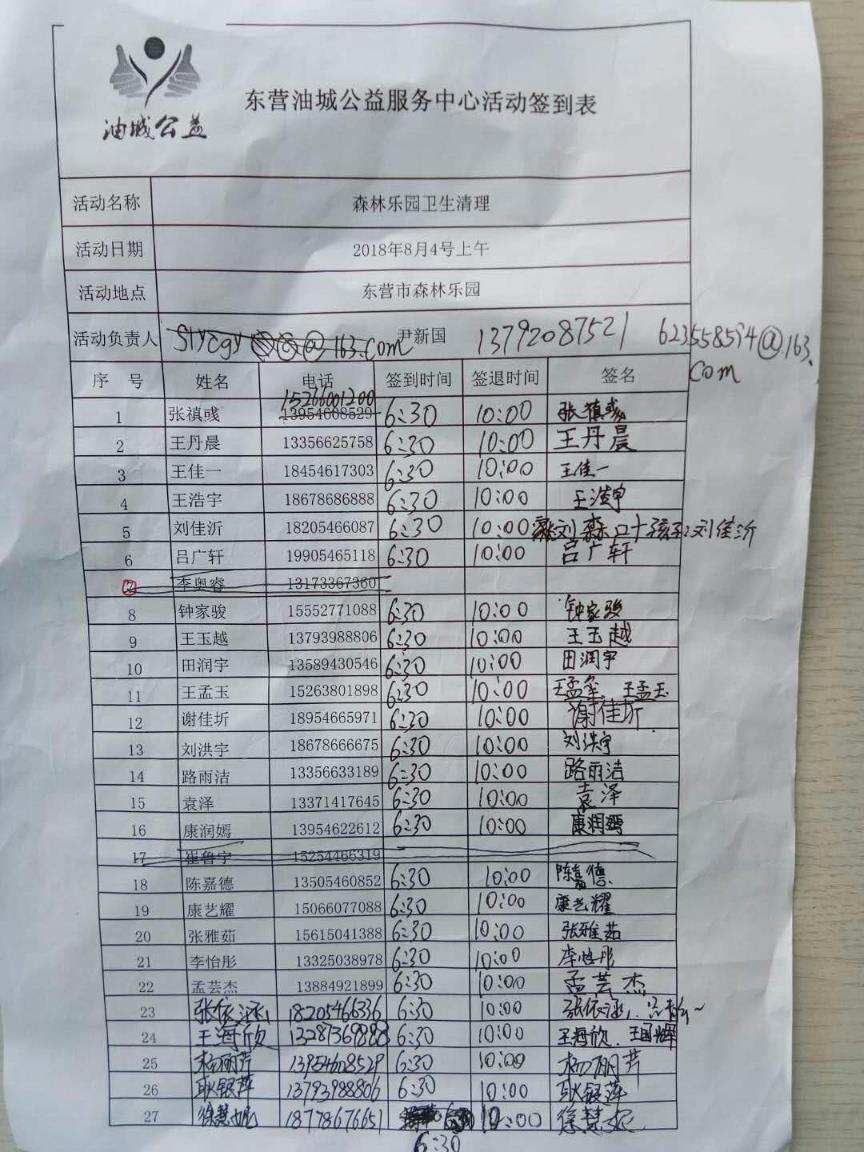 油城公益
东营油城公益服务中心活动签到表
活动名称 森林乐园卫生清理
活动日期 2018年8月4号上午
活动地点 东营市森林乐园
活动负责人 slycgy @163.com 尹新国 13792087521 623558594@163.com
序 号 姓名 电话 签到时间 签退时间 签名
15266001200
1 张禛彧 13954608529 6:30 10:00 张禛彧
2 王丹晨 13356625758 6:30 10:00 王丹晨
3 王佳一 18454617303 6:30 10:00 王佳一
4 王浩宇 18678686888 6:30 10:00 王浩宇
5 刘佳沂 18205466087 6:30 10:00 刘森 孩子:刘佳沂
6 吕广轩 19905465118 6:30 10:00 吕广轩
7 李奥睿 13173367360
8 钟家骏 15552771088 6:30 10:00 钟家骏
9 王玉越 13793988806 6:30 10:00 王玉越
10 田润宇 13589430546 6:30 10:00 田润宇
11 王孟玉 15263801898 6:30 10:00 王孟玉
12 谢佳圻 18954665971 6:30 10:00 谢佳圻
13 刘洪宇 18678666675 6:30 10:00 刘洪宇
14 路雨洁 13356633189 6:30 10:00 路雨洁
15 袁泽 13371417645 6:30 10:00 袁泽
16 康润嫣 13954622612 6:30 10:00 康润嫣
17 崔鲁宁 15254466319
18 陈嘉德 13505460852 6:30 10:00 陈嘉德
19 康艺耀 15066077088 6:30 10:00 康艺耀
20 张雅茹 15615041388 6:30 10:00 张雅茹
21 李怡彤 13325038978 6:30 10:00 李怡彤
22 孟芸杰 13884921899 6:30 10:00 孟芸杰
23 张依涵 18205466336 6:30 10:00 张依涵
24 王海欣 13287369888 6:30 10:00 王海欣、王国辉
25 杨丽芹 13954608529 6:30 10:00 杨丽芹
26 耿银萍 13793988806 6:30 10:00 耿银萍
27 徐慧妮 18778676651 6:30 10:00 徐慧妮
6:30